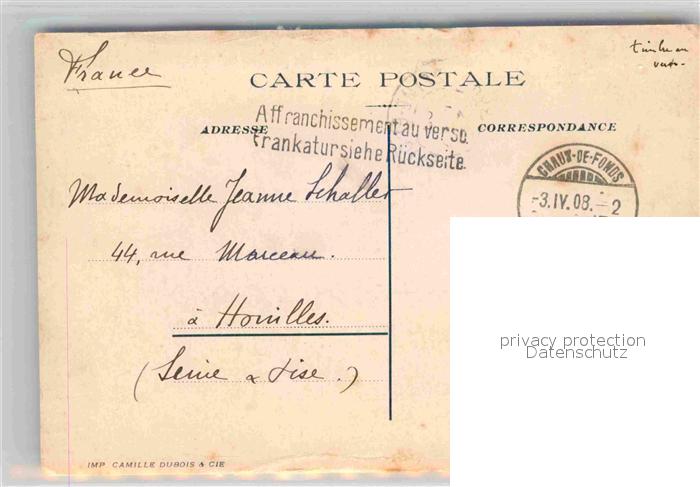 France
timbre au
verso.
CARTE POSTALE
Affranchissement au verso.
Frankatur siehe Rückseite.
ADRESSE
CORRESPONDANCE
CHAUX-DE-FONDS
-3.IV.08.-2
Mademoiselle Jeanne Schaller
44, rue Marceau.
à Houilles.
(Seine & Oise.)
privacy protection
Datenschutz
IMP. CAMILLE DUBOIS & CIE